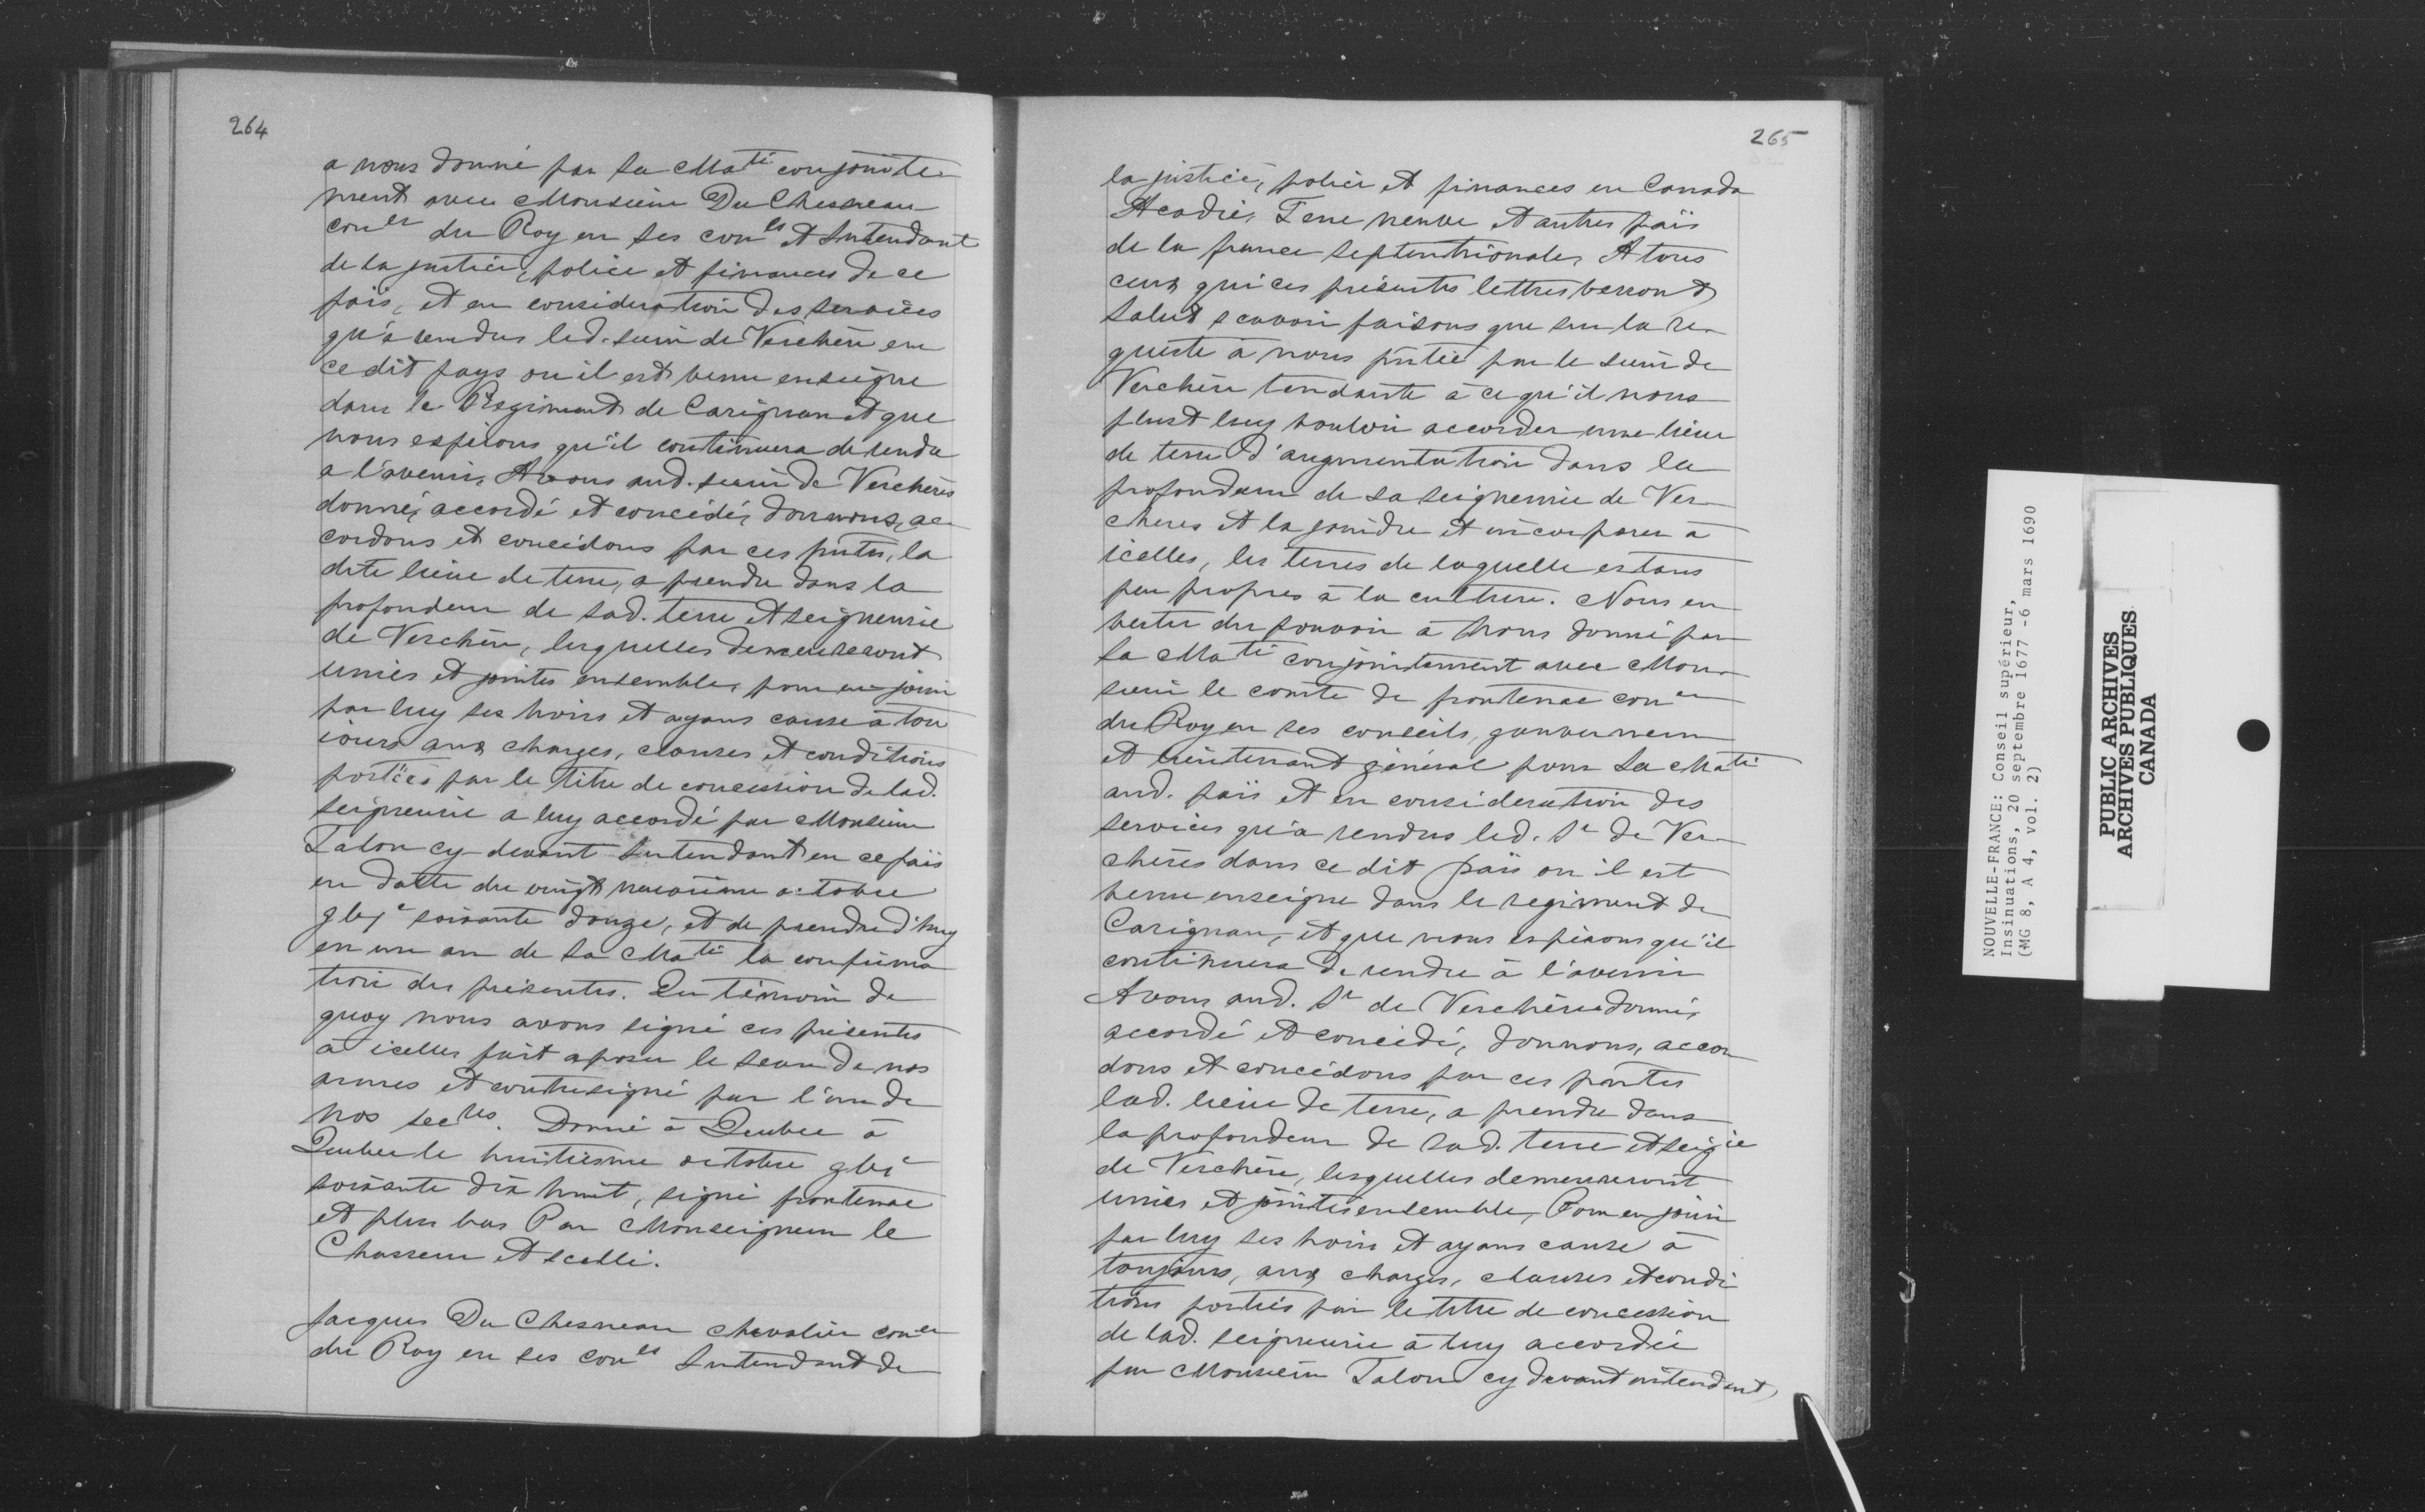 264
a nous donné par Sa Ma^té conjointe
ment avec Monsieur Du Chesneau
con^er du Roy en ses con^ls et Intendant
de la justice, police et finances de ce
païs, et en consideration des services
qu'a rendus led. sieur de Verchère en
ce dit pays ou il est venu enseigne
dans le Regiment de Carignan et que
nous esperons qu'il continuera de rendre
a l'avenir, Avons aud. sieur de Verchères
donné, accordé et concédé, donnons, ac
cordons et concédons par ces pntes, la
dite lieue de terre, a prendre dans la
profondeur de sad. terre et seigneurie
de Verchère, lesquelles demeureront
unies et jointes ensembles, pour en jouir
par luy ses hoirs et ayans cause à tou
iours aux charges, clauses et conditions
portées par le titre de concession de lad.
seigneurie a luy accordé par Monsieur
Talon cy-devant Intendant en ce païs
en datte du vingt neuviéme octobre
gbj^c soixante douze, et de prendre d'huy
en un an de Sa Ma^té la confirma
tion des présentes. En témoin de
quoy nous avons signé ces présentes
à icelles fait aposer le sceau de nos
armes et contresigné par l'un de
nos sec^res. Donné à Quebec à
Quebec le huitiesme octobre gbj^c
soixante dix huit, signé frontenac
et plus bas Par Monseigneur le
Chasseur et scellé.
Jacques Du Chesneau chevalier con^er
du Roy en ses con^ls Intendant de
265
la justice, police et finances en Canada
Acadie, Terre neuve et autres païs
de la france septentrionale, A tous
ceux qui ces présentes lettres verront
Salut scavoir faisons que sur la re
queste à nous pntée par le sieur de
Verchère tendante à ce qu'il nous
plust luy vouloir accorder une lieue
de terre d'augmentation dans la
profondeur de sa seigneurie de Ver
cheres et la joindre et incorporer à
icelles, les terres de laquelle estans
peu propres à la culture. Nous en
vertu du pouvoir à Nous donné par
Sa Ma^té conjointement avec Mon
sieur le comte de frontenac con^er
du Roy en ses conseils, gouverneur
et lieutenant général pour Sa Ma^té
aud. païs et en consideration des
services qu'a rendus led. S^r de Ver
chères dans ce dit païs ou il est
venu enseigne dans le regiment de
Carignan, et que nous espérons qu'il
continuera de rendre à l'avenir
Avons aud. S^r de Verchère donné,
accordé et concédé, donnons, accor
dons et concédons par ces pntes
lad. lieue de terre, a prendre dans
la profondeur de sad. terre et seig^ie
de Verchère, lesquelles demeureront
unies et jointes ensemble, Pour en jouir
par luy ses hoirs et ayans cause à
toujours, aux charges, clauses et condi
tions portées par le titre de concession
de lad. seigneurie à luy accordée
par Monsieur Talon cy devant intendant
NOUVELLE-FRANCE: Conseil supérieur,
Insinuations, 20 septembre 1677 -6 mars 1690
(MG 8, A 4, vol. 2)
PUBLIC ARCHIVES
ARCHIVES PUBLIQUES
CANADA